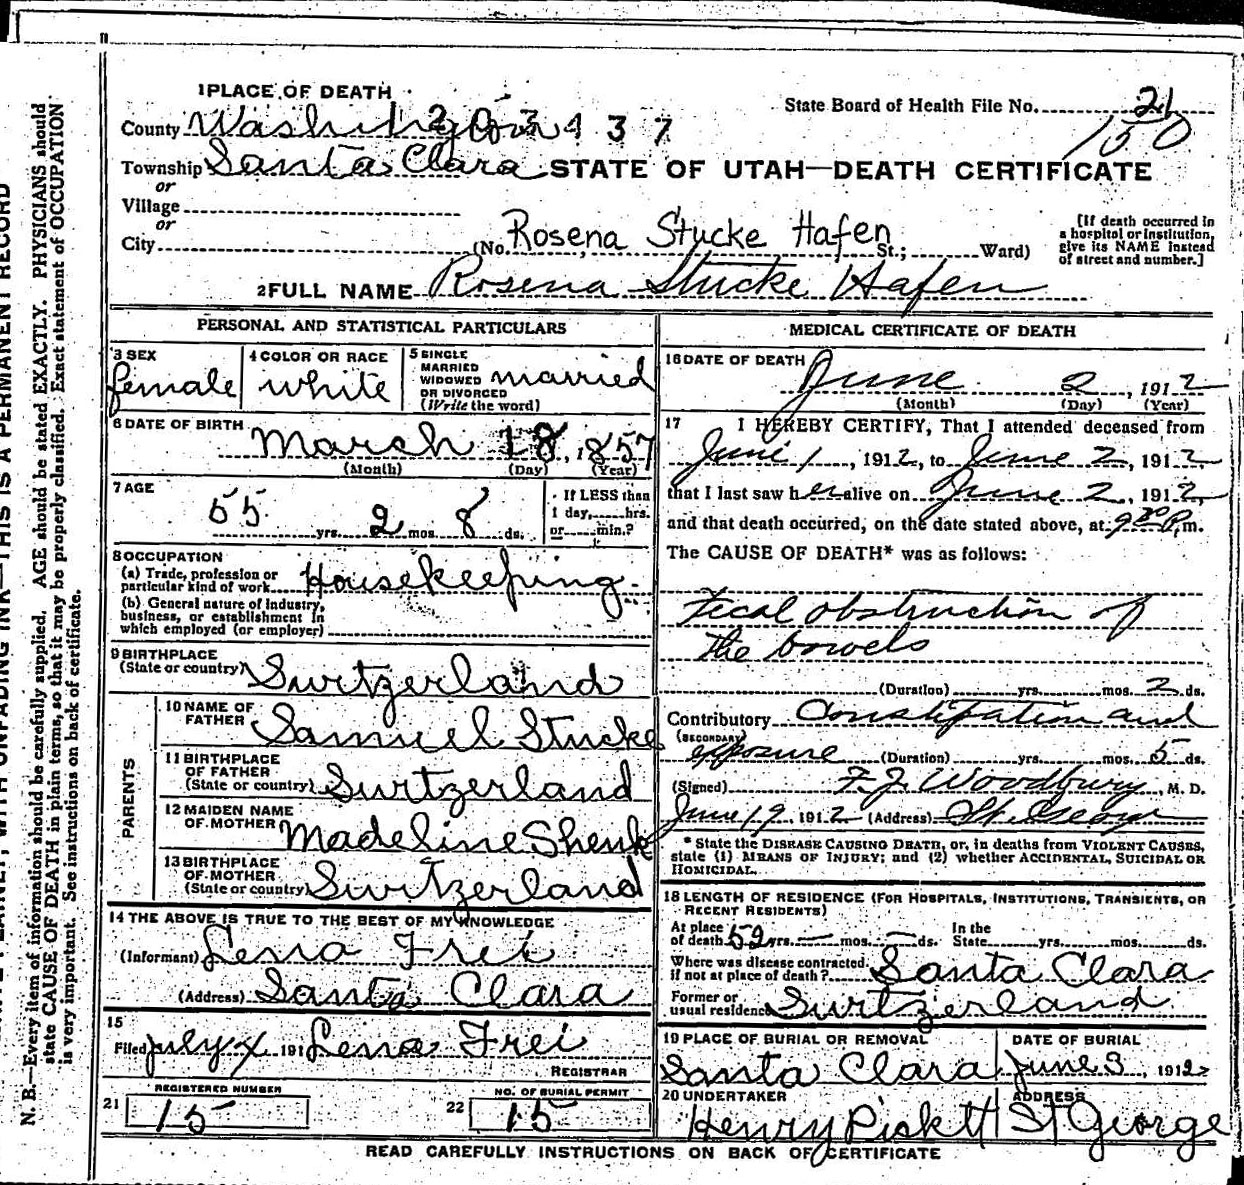 1 PLACE OF DEATH
County Washington
State Board of Health File No. 21
150
Township Santa Clara
STATE OF UTAH—DEATH CERTIFICATE
or
Village
or
City (No. Rosena Stucke Hafen St.; Ward)
[If death occurred in
a hospital or institution,
give its NAME instead
of street and number.]
2 FULL NAME Rosena Stucke Hafen
PERSONAL AND STATISTICAL PARTICULARS
3 SEX
female
4 COLOR OR RACE
white
5 SINGLE
MARRIED
WIDOWED
OR DIVORCED
(Write the word)
married
6 DATE OF BIRTH
March 18, 1857
(Month) (Day) (Year)
7 AGE
55 yrs. 2 mos. 8 ds.
If LESS than
1 day, hrs.
or min.?
8 OCCUPATION
(a) Trade, profession or
particular kind of work Housekeeping
(b) General nature of industry,
business, or establishment in
which employed (or employer)
9 BIRTHPLACE
(State or country) Switzerland
PARENTS
10 NAME OF
FATHER Samuel Stucke
11 BIRTHPLACE
OF FATHER
(State or country) Switzerland
12 MAIDEN NAME
OF MOTHER Madeline Shenk
13 BIRTHPLACE
OF MOTHER
(State or country) Switzerland
14 THE ABOVE IS TRUE TO THE BEST OF MY KNOWLEDGE
(Informant) Lena Frei
(Address) Santa Clara
15
Filed July 191 Lena Frei
REGISTRAR
REGISTERED NUMBER
21 15
NO. OF BURIAL PERMIT
22 15
MEDICAL CERTIFICATE OF DEATH
16 DATE OF DEATH
June 2, 1912
(Month) (Day) (Year)
17 I HEREBY CERTIFY, That I attended deceased from
June 1, 1912, to June 2, 1912,
that I last saw her alive on June 2, 1912,
and that death occurred, on the date stated above, at 9 30 P.m.
The CAUSE OF DEATH* was as follows:
Fecal obstruction of
the bowels
(Duration) yrs. mos. 2 ds.
Contributory Constipation and
(SECONDARY)
exposure (Duration) yrs. mos. 5 ds.
(Signed) F. J. Woodbury, M. D.
June 19, 1912 (Address) St. George
* State the DISEASE CAUSING DEATH, or, in deaths from VIOLENT CAUSES,
state (1) MEANS OF INJURY; and (2) whether ACCIDENTAL, SUICIDAL OR
HOMICIDAL.
18 LENGTH OF RESIDENCE (FOR HOSPITALS, INSTITUTIONS, TRANSIENTS, OR
RECENT RESIDENTS)
At place
of death 52 yrs. — mos. — ds.
In the
State yrs. mos. ds.
Where was disease contracted,
if not at place of death? Santa Clara
Former or
usual residence Switzerland
19 PLACE OF BURIAL OR REMOVAL
Santa Clara
DATE OF BURIAL
June 3, 1912
20 UNDERTAKER
Henry Pickett
ADDRESS
St George
READ CAREFULLY INSTRUCTIONS ON BACK OF CERTIFICATE
THIS IS A PERMANENT RECORD
N. B.—Every item of information should be carefully supplied. AGE should be stated EXACTLY. PHYSICIANS should
state CAUSE OF DEATH in plain terms, so that it may be properly classified. Exact statement of OCCUPATION
is very important. See instructions on back of certificate.